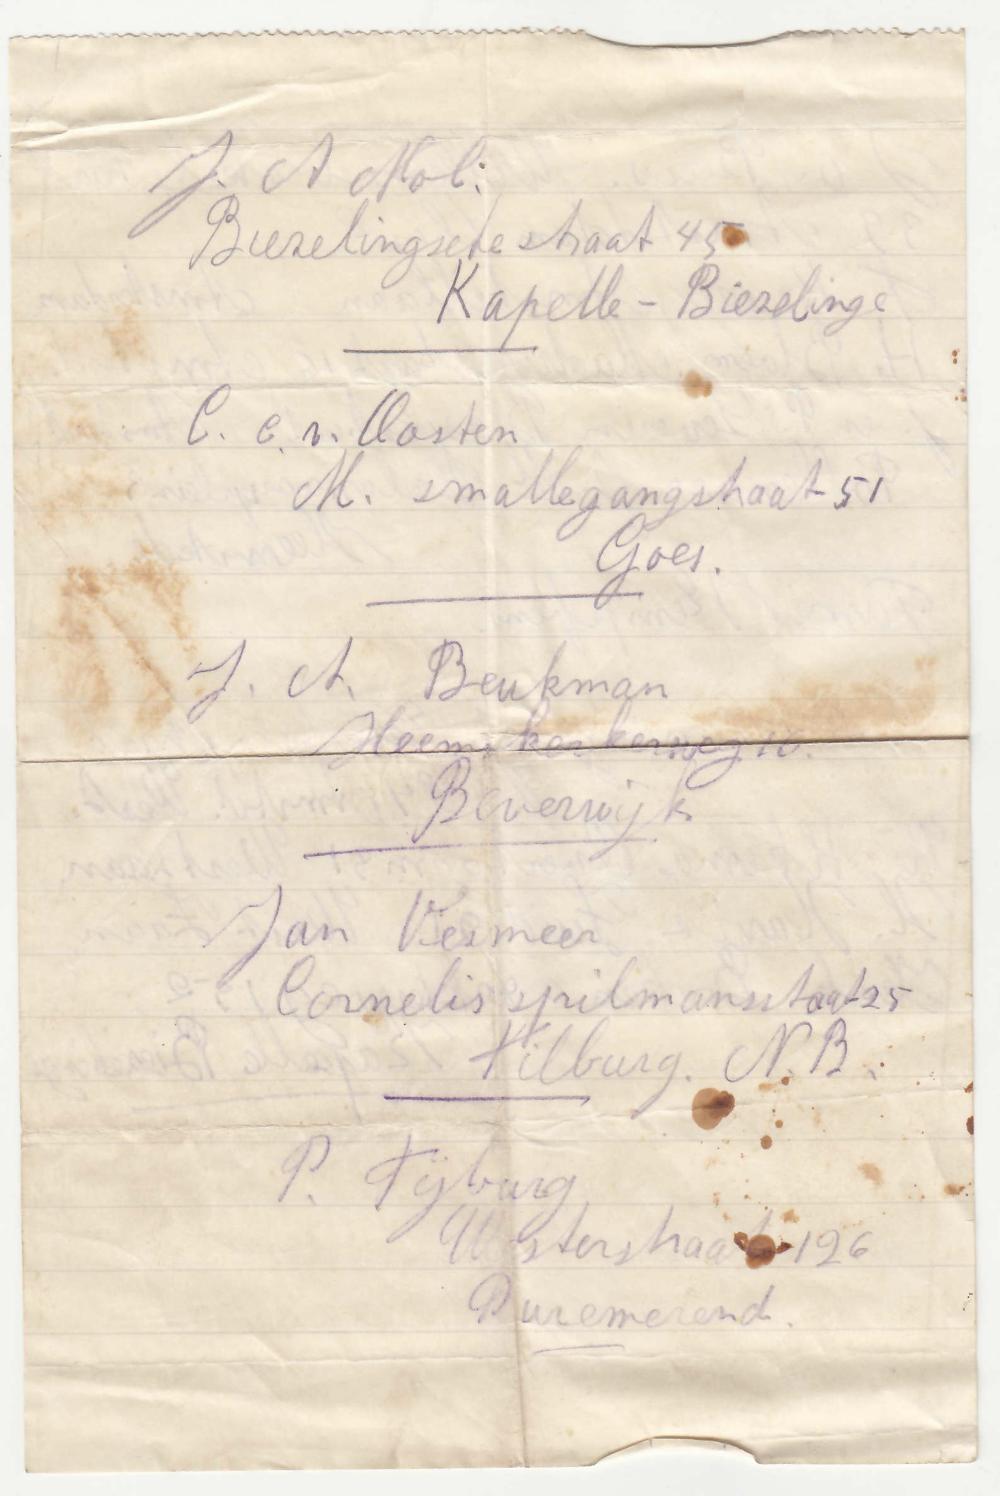 J. A Mol:
Biezelingsche straat 45
Kapelle - Biezelinge
C. C. v. Oosten
M. smallegangstraat 51
Goes.
J. A. Beukman
Heemskerkerweg 10.
Beverwijk
Jan Vermeer
Cornelis spilmansstaat 25
Tilburg. N.B.
P. Tijburg
Westerstraat 126
Puremerend.